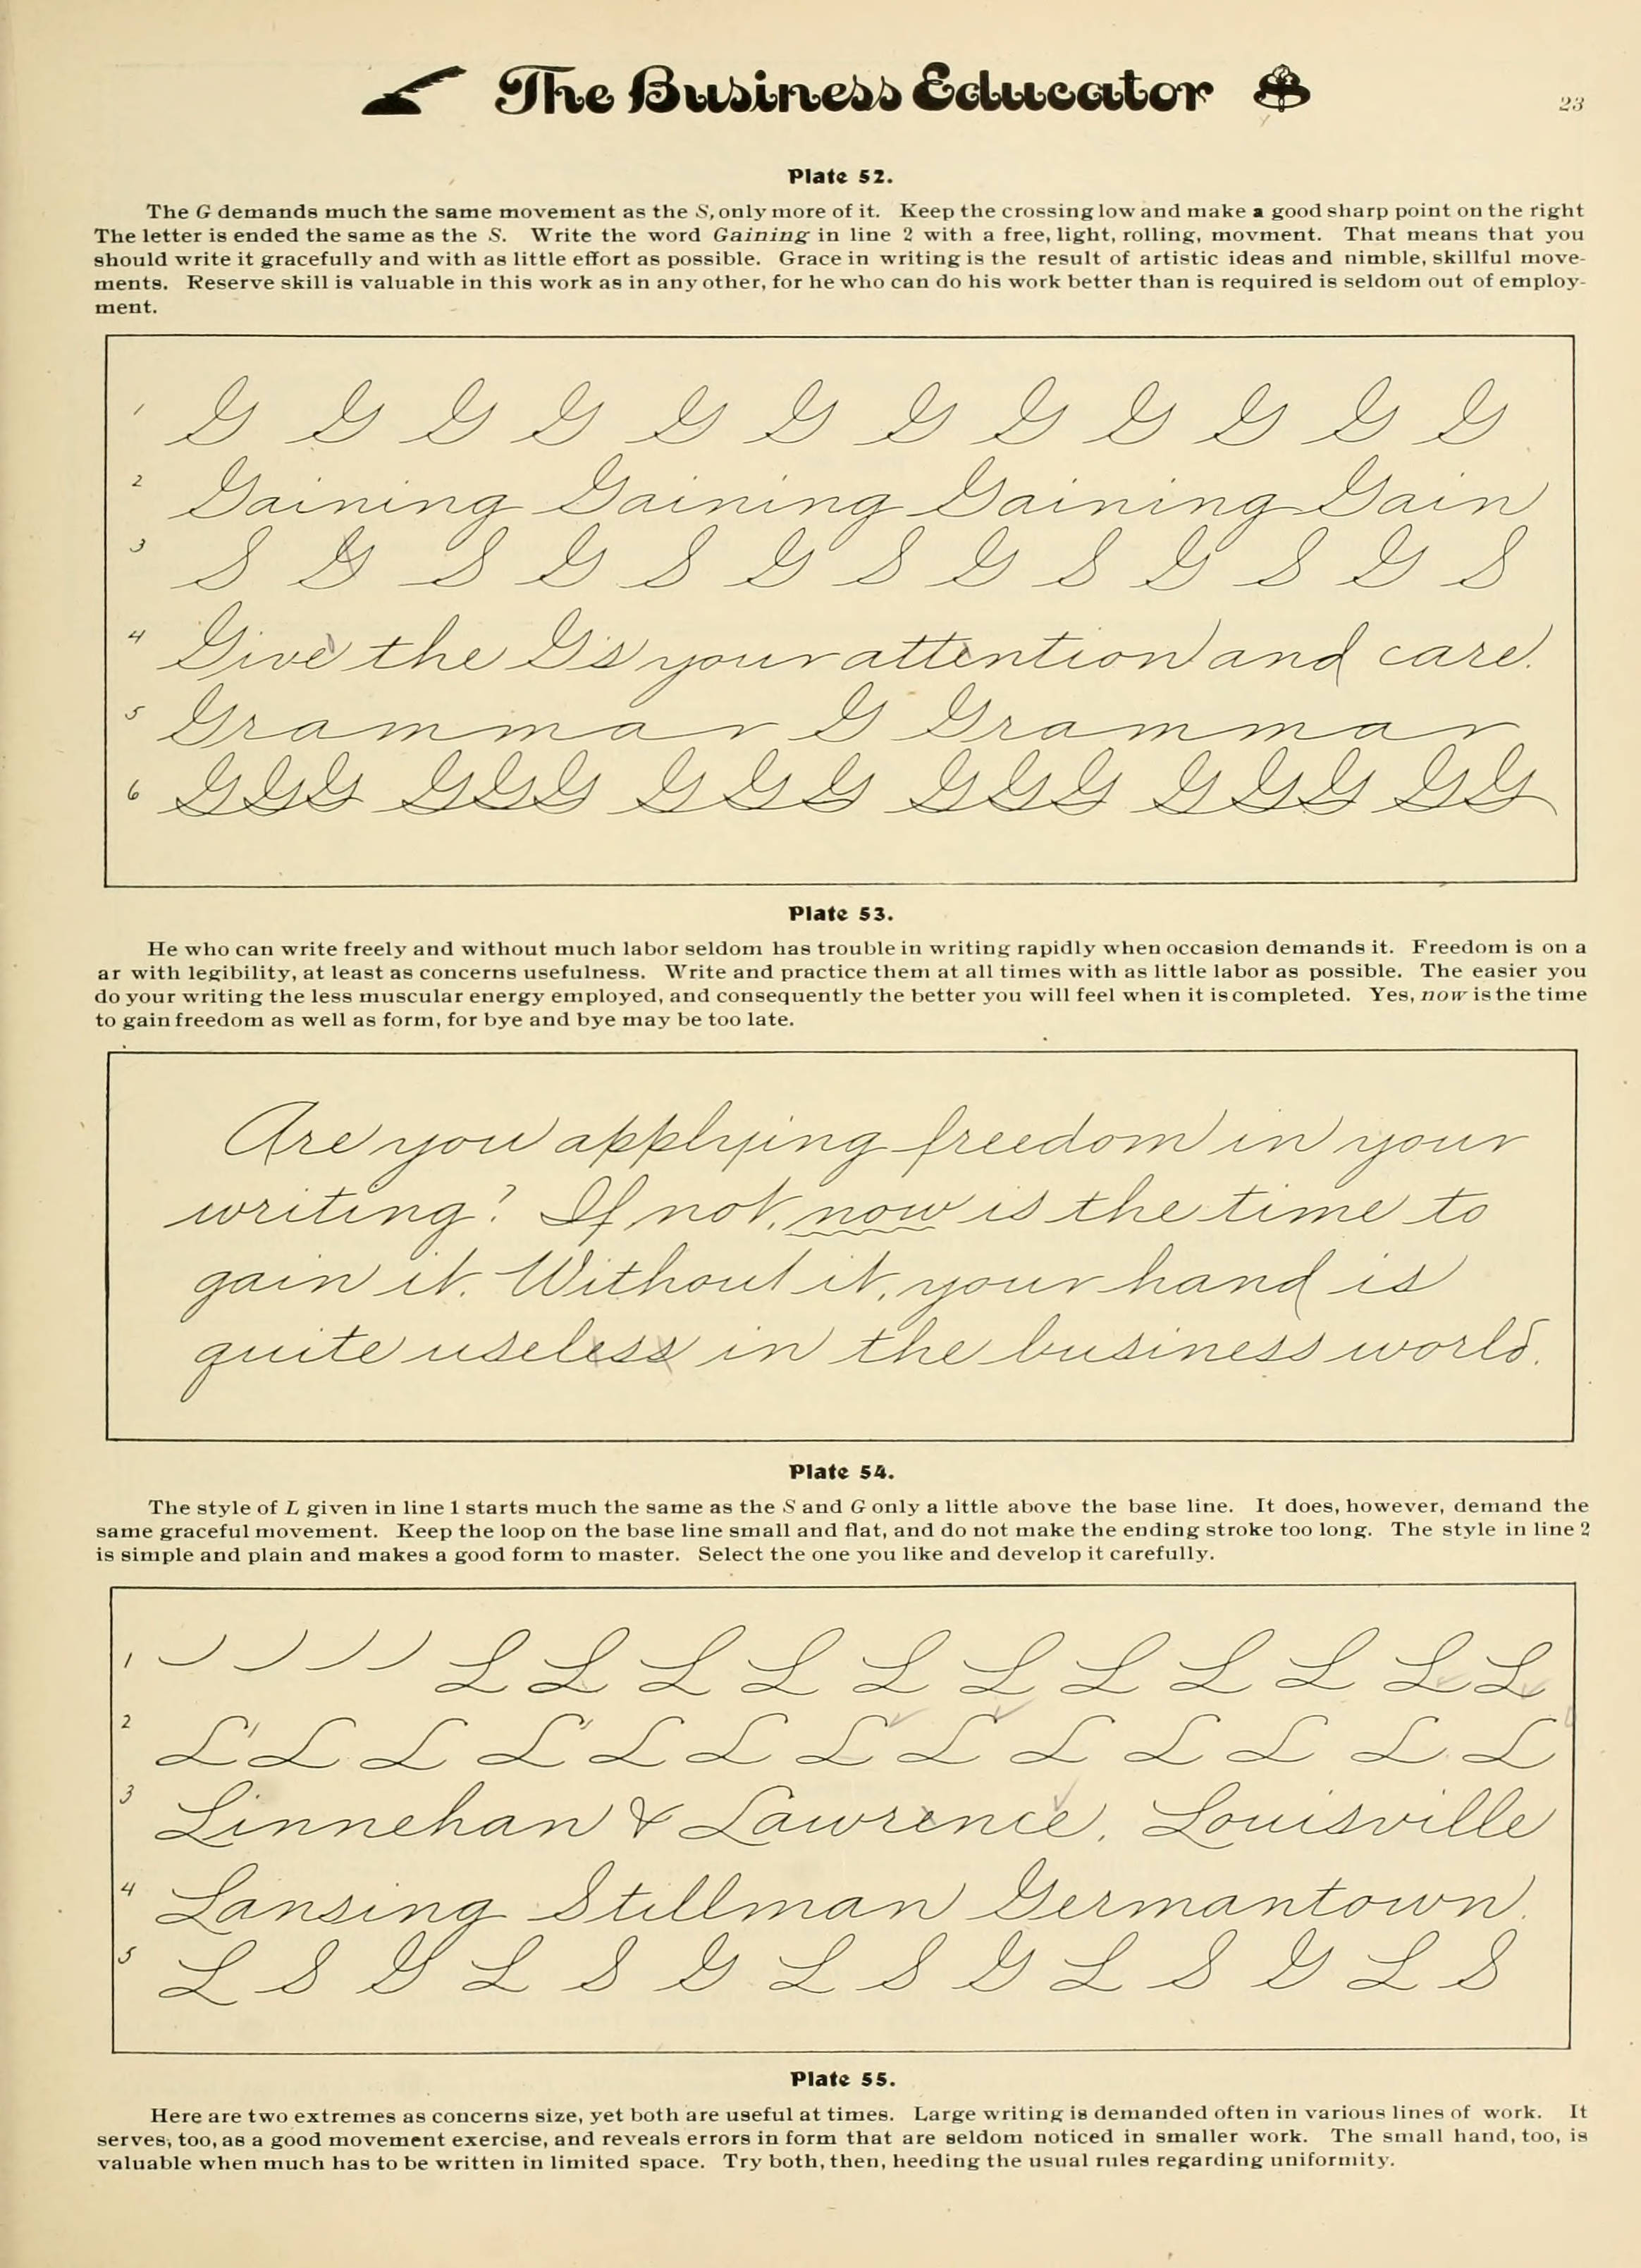 The Business Educator
23
Plate 52.
The G demands much the same movement as the S, only more of it. Keep the crossing low and make a good sharp point on the right
The letter is ended the same as the S. Write the word Gaining in line 2 with a free, light, rolling, movment. That means that you
should write it gracefully and with as little effort as possible. Grace in writing is the result of artistic ideas and nimble, skillful move-
ments. Reserve skill is valuable in this work as in any other, for he who can do his work better than is required is seldom out of employ-
ment.
1 G G G G G G G G G G G G
2 Gaining Gaining Gaining Gain
3 S G S G S G S G S G S G S
4 Give the G's your attention and care.
5 Grammar G Grammar
6 GGG GGG GGG GGG GGG GG
Plate 53.
He who can write freely and without much labor seldom has trouble in writing rapidly when occasion demands it. Freedom is on a
ar with legibility, at least as concerns usefulness. Write and practice them at all times with as little labor as possible. The easier you
do your writing the less muscular energy employed, and consequently the better you will feel when it is completed. Yes, now is the time
to gain freedom as well as form, for bye and bye may be too late.
Are you applying freedom in your
writing? If not, now is the time to
gain it. Without it, your hand is
quite useless in the business world.
Plate 54.
The style of L given in line 1 starts much the same as the S and G only a little above the base line. It does, however, demand the
same graceful movement. Keep the loop on the base line small and flat, and do not make the ending stroke too long. The style in line 2
is simple and plain and makes a good form to master. Select the one you like and develop it carefully.
1 L L L L L L L L L L L
2 L L L L L L L L L L L L L
3 Linnehan & Lawrence, Louisville
4 Lansing Stillman Germantown.
5 L S G L S G L S G L S G L S
Plate 55.
Here are two extremes as concerns size, yet both are useful at times. Large writing is demanded often in various lines of work. It
serves, too, as a good movement exercise, and reveals errors in form that are seldom noticed in smaller work. The small hand, too, is
valuable when much has to be written in limited space. Try both, then, heeding the usual rules regarding uniformity.